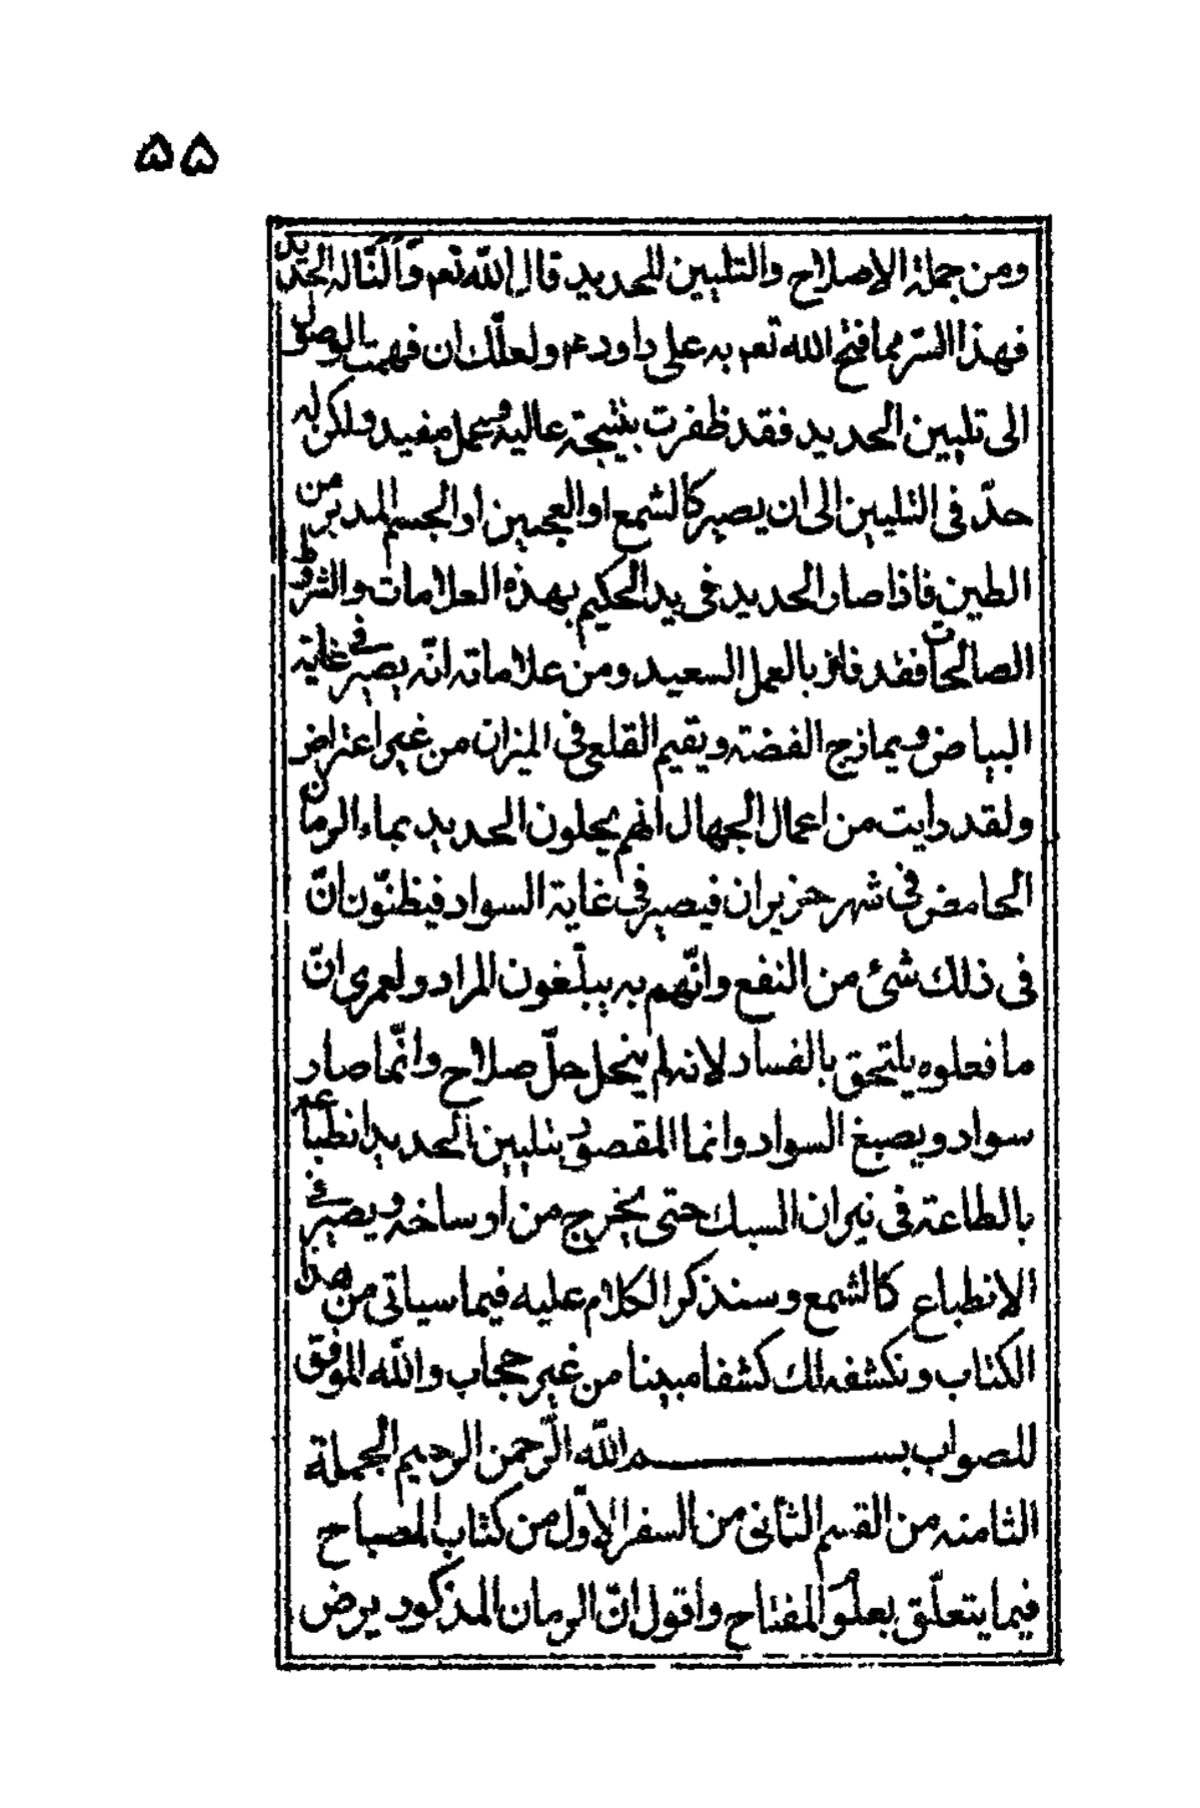 ۵۵
ومن جملة الاصلاح والتليين للحديد قال الله تعم وَاَلَنّا له الحديد
فهذا السّر مما فتح الله تعم به على داود عم ولعلّك ان فهمت الوصول
الى تليين الحديد فقد ظفرت بنتيجة عالية وسمل مفيد ولكن له
حدّ فى التليين الى ان يصير كالشمع او العجين او الجسم المدبر من
الطين فاذا صار الحديد فى يد الحكيم بهذه العلامات والشروط
الصالحات فقد فاز بالعمل السعيد ومن علاماته انّه يصير فى غاية
البياض ويمازج الفضة ويقيم القلعى فى الميزان من غير اعتراض
ولقد رايت من اعمال الجهال انهم يحلون الحديد بماء الرمان
الحامض فى شهر حزيران فيصير فى غاية السواد فيظنّون انّ
فى ذلك شئ من النفع وانّهم به يبلّغون المراد ولعمرى انّ
ما فعلوه يلتحق بالفساد لانه لم ينحل حلّ صلاح وانّما صار
سواد ويصبغ السواد وانما المقصود بتليين الحديد انطباعه
بالطاعة فى نيران السبك حتى يخرج من اوساخه ويصير فى
الانطباع كالشمع وسنذكر الكلام عليه فيما سياتى من هذا
الكتاب ونكشفه لك كشفا مبينا من غير حجاب والله الموفق
للصواب بســـــــم الله الرّحمن الرحيم الجملة
الثامنه من القسم الثانى من السفر الاوّل من كتاب المصباح
فيما يتعلّق بعلوم المفتاح واقول انّ الرمان المذكور يرض